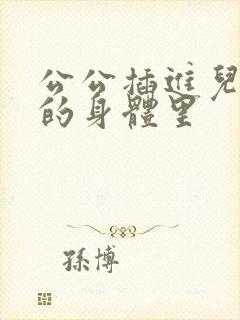 公公插進兒
的身體里
孫博